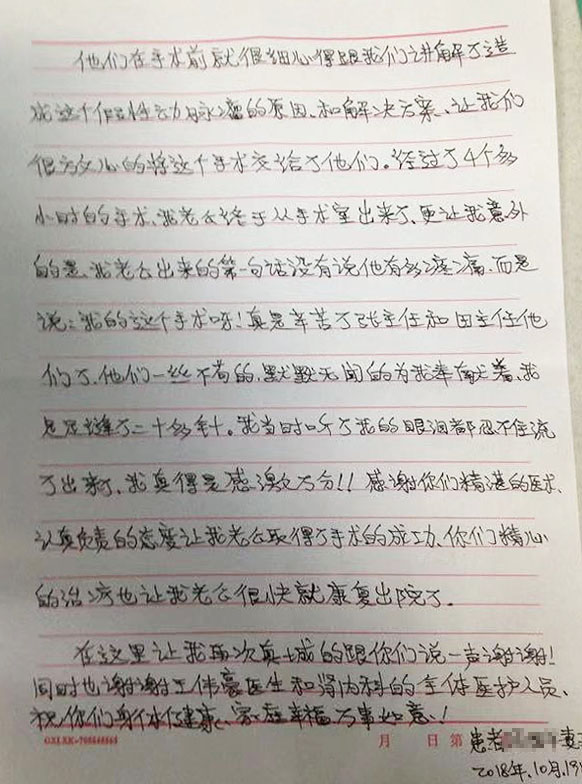 他们在手术前就很细心得跟我们讲解了造
成这个假性动脉瘤的原因、和解决方案、让我们
很放心的将这个手术交给了他们。经过了4个多
小时的手术、我老公终于从手术室出来了、更让我意外
的是、我老公出来的第一句话没有说他有多疼痛、而是
说：我的这个手术呀！真是辛苦了张主任和田主任他
们了、他们一丝不苟的、默默无闻的为我奉献着、我
足足缝了二十多针。我当时听了我的眼泪都忍不住流
了出来了、我真得是感激万分!! 感谢你们精湛的医术、
认真负责的态度让我老公取得了手术的成功、你们精心
的治疗也让我老公很快就康复出院了。
在这里让我再次真诚的跟你们说一声谢谢!
同时也谢谢王伟 医生和肾内科的全体医护人员、
祝你们身体健康、家庭幸福万事如意!
GXLXK-
月 日 第
患者 妻
2018年.10月.19